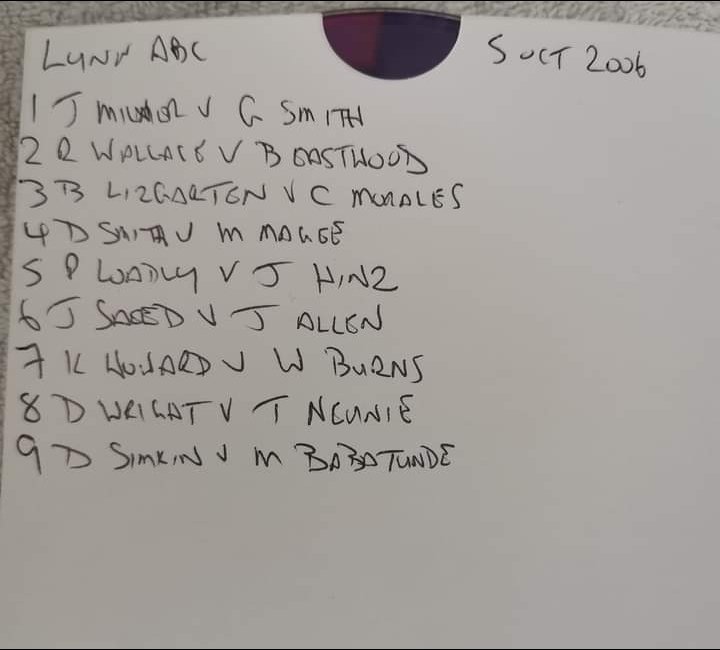 LYNN ABC 5 OCT 2006
1 J V G SMITH
2 R WALLACE V B EASTWOOD
3 B LIZGARTEN V C MORALES
4 D SMITH V M MAGEE
5 P V J HINZ
6 J SAEED V J ALLEN
7 K HOWARD V W BURNS
8 D WRIGHT V T
9 D SIMKIN V M BABATUNDE